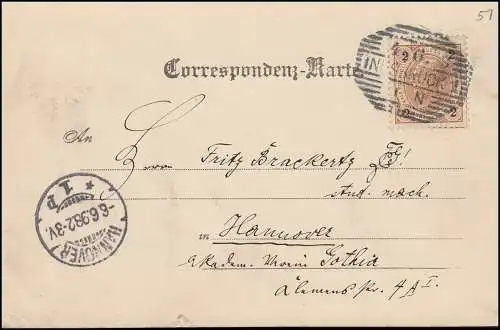 51
Correspondenz-Karte
2 2
INNSBRUCK
An
Herrn Fritz Brackertz
stud. mach.
in Hannover
Akadem. Verein Gothia
Klemensstr. 4 A I.
HANNOVER
6.6.98. 2-3V.
* 1.P